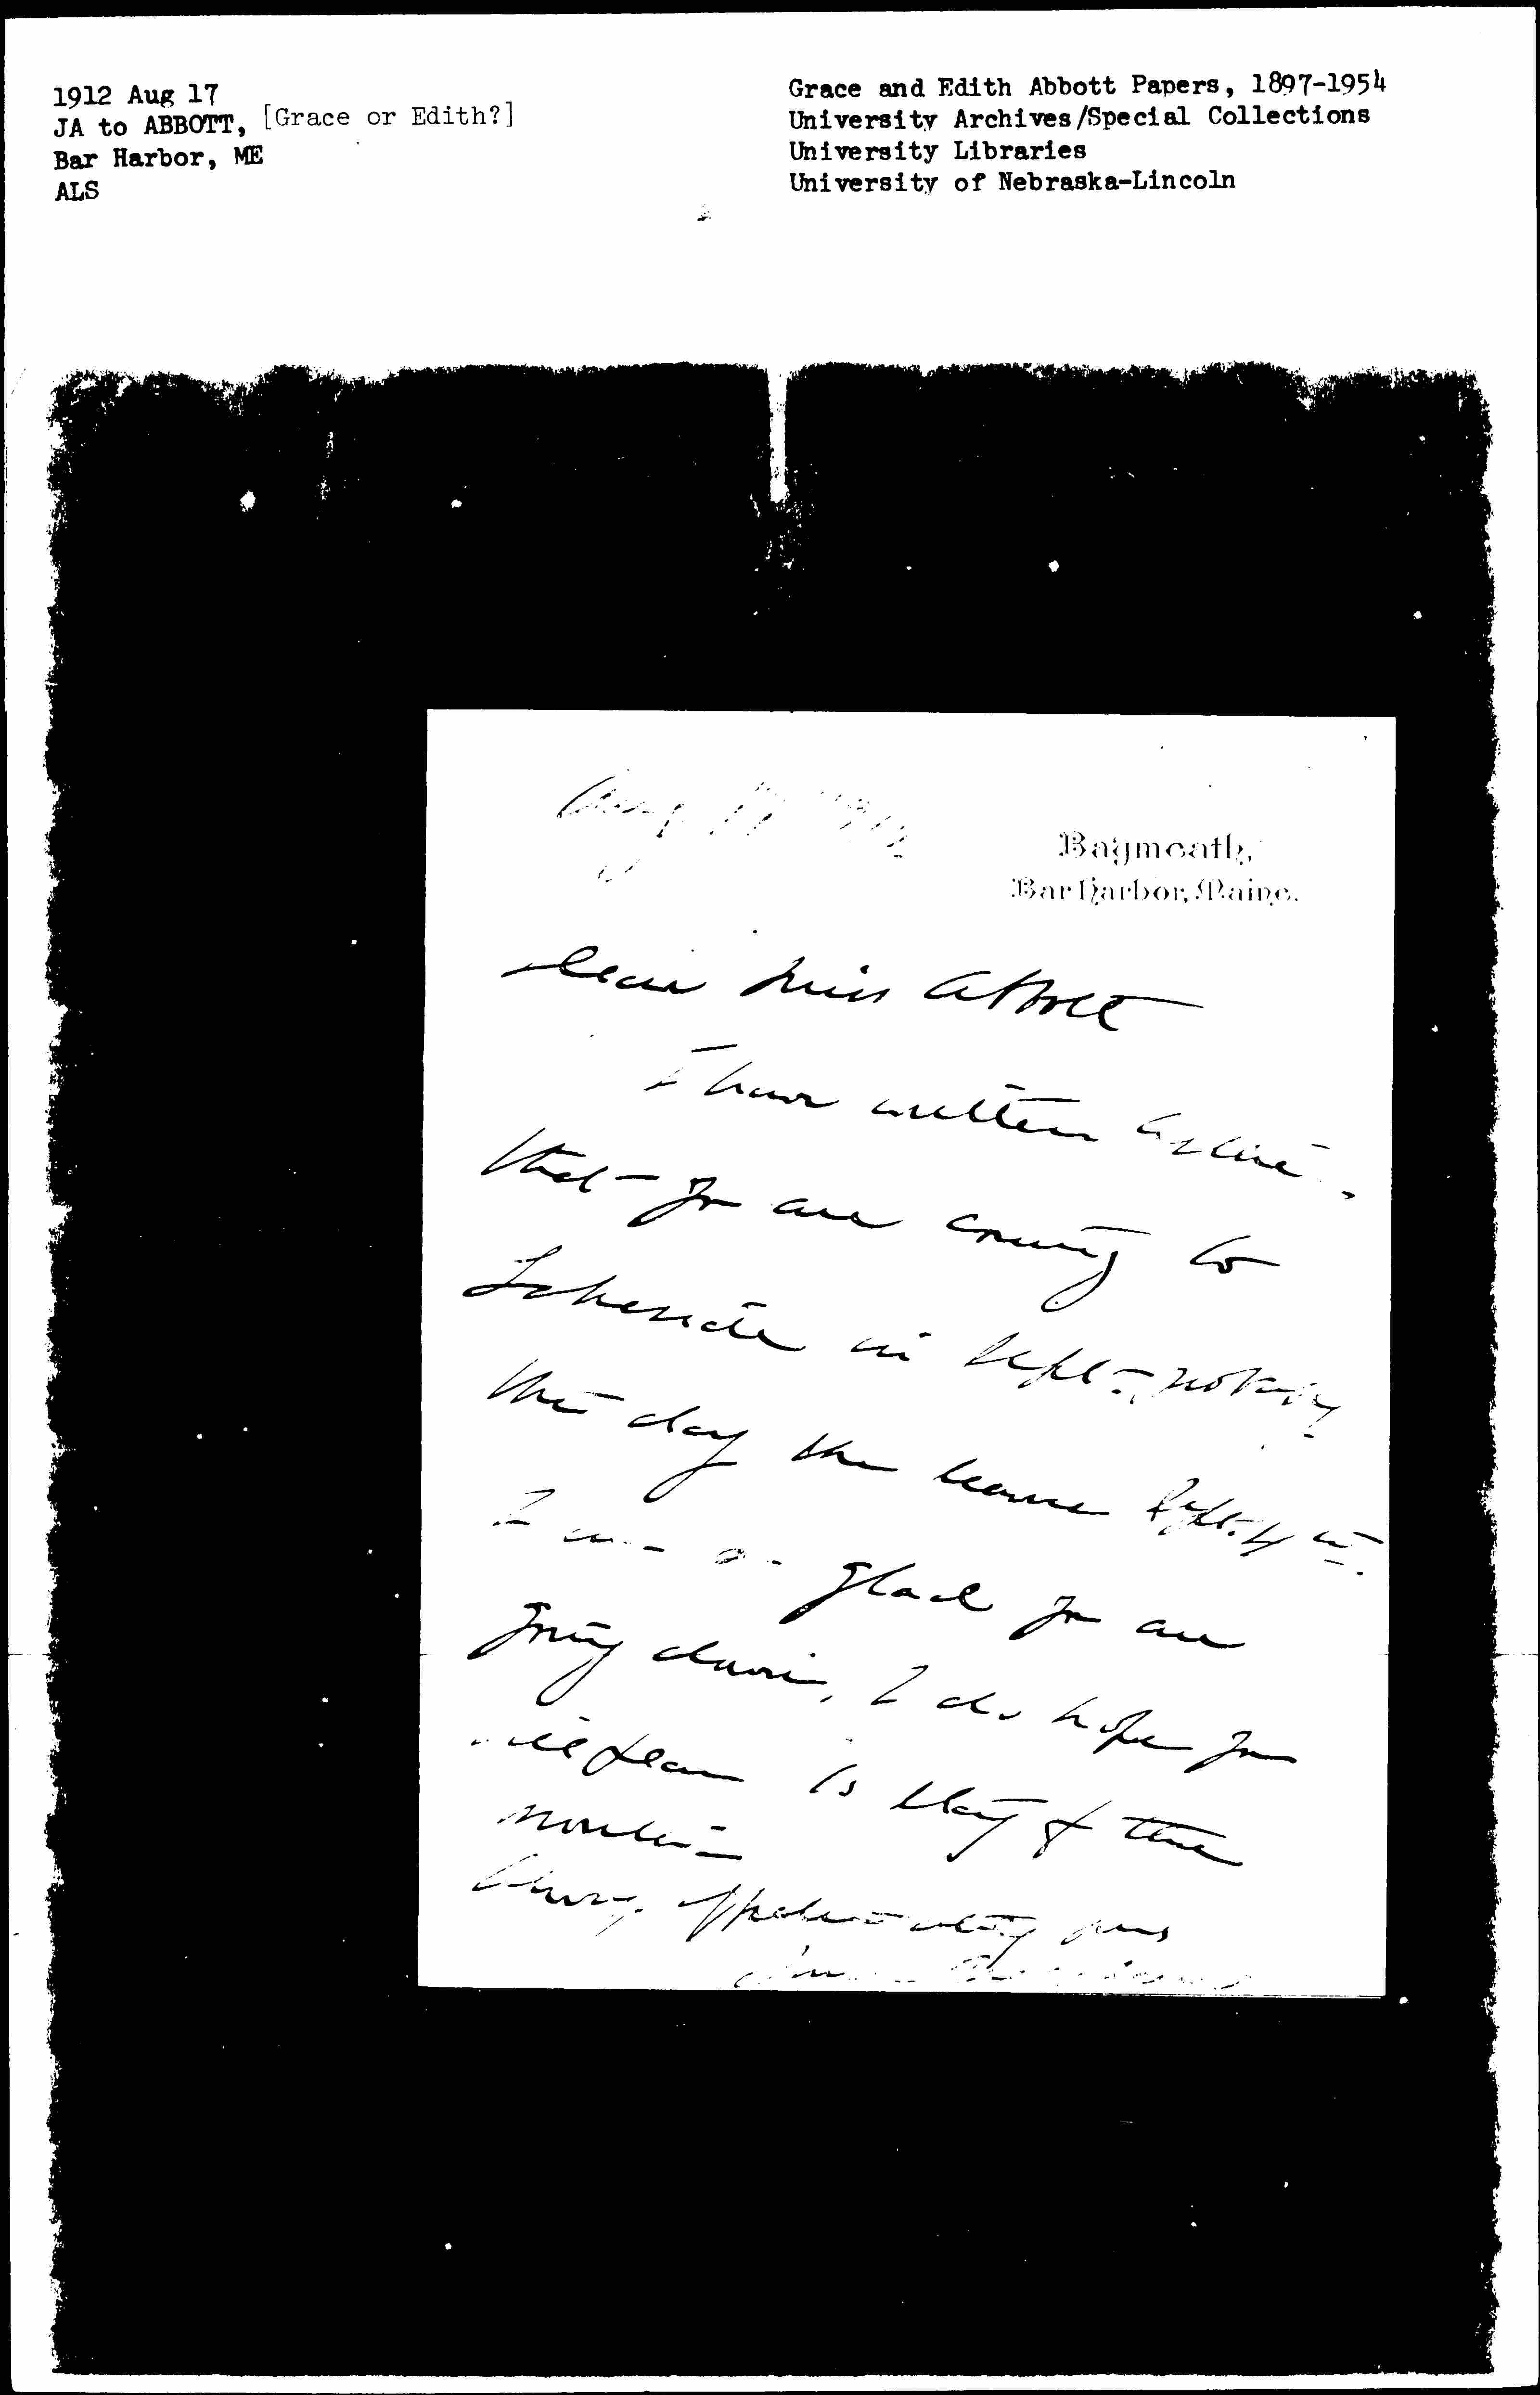 1912 Aug 17
JA to ABBOTT, [Grace or Edith?]
Bar Harbor, ME
ALS
Grace and Edith Abbott Papers, 1897-1954
University Archives/Special Collections
University Libraries
University of Nebraska-Lincoln
Aug 17" 1912
Baymeath,
Bar Harbor, Maine.
Dear Miss Abbott
I have written
that you are coming to
Lakeside in Sept -
the day she leaves Sept. 4"
I am so glad you are
going down, I do hope you
will plan to stay
months
Always affectionately yours
Jane Addams